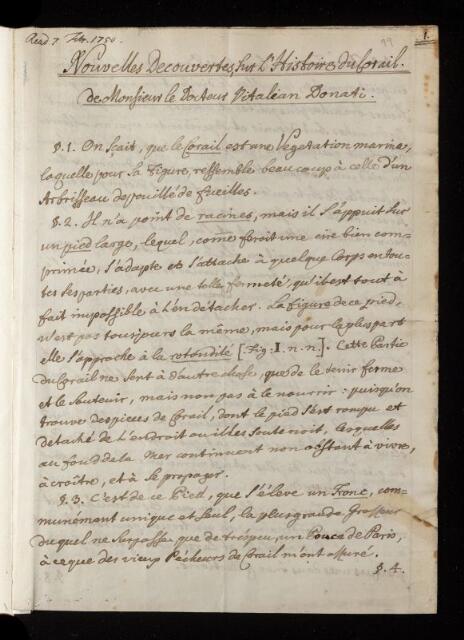 Read 7 Febr. 1750.
99
1.
Nouvelles Decouvertes sur L'Histoire du Corail.
de Monsieur le Docteur Vitalian Donati.
§. 1. On sçait, que le Corail est une Vegetation marine,
laquelle pour sa Figure, ressemble beaucoup à celle d'un
Arbrisseau depouillé de fueilles.
§. 2. Il n'a point de racines, mais il s'appuit sur
un pied large, lequel, comme feroit une cire bien com-
primée, s'adapte et s'attache à quelque Corps en tou-
tes ses parties, avec une telle fermeté, qu'il est tout à
fait impossible à l'en détacher. La figure de ce pied,
n'est pas tousjours la même, mais pour la pluspart
elle s'approche à la rotondité [Fig. I. n. n.]. Cette Partie
du Corail ne sert à d'autre chose, que de le tenir ferme
et le soutenir, mais non pas à le nourrir: puisqu'on
trouve des pieces de Corail, dont le pied s'est rompu et
detaché de l'endroit ou il les soutenoit, lesquelles
au fond de la Mer continuent non obstant à vivre,
à croître, et à se propager.
§. 3. C'est de ce Pied, que s'éleve un Tronc, com-
munément unique et seul, la plus grande Grosseur
du quel ne surpasse que de tres peu, un Pouce de Paris,
à ce que des vieux Pécheurs de Corail m'ont assuré.
§. 4.